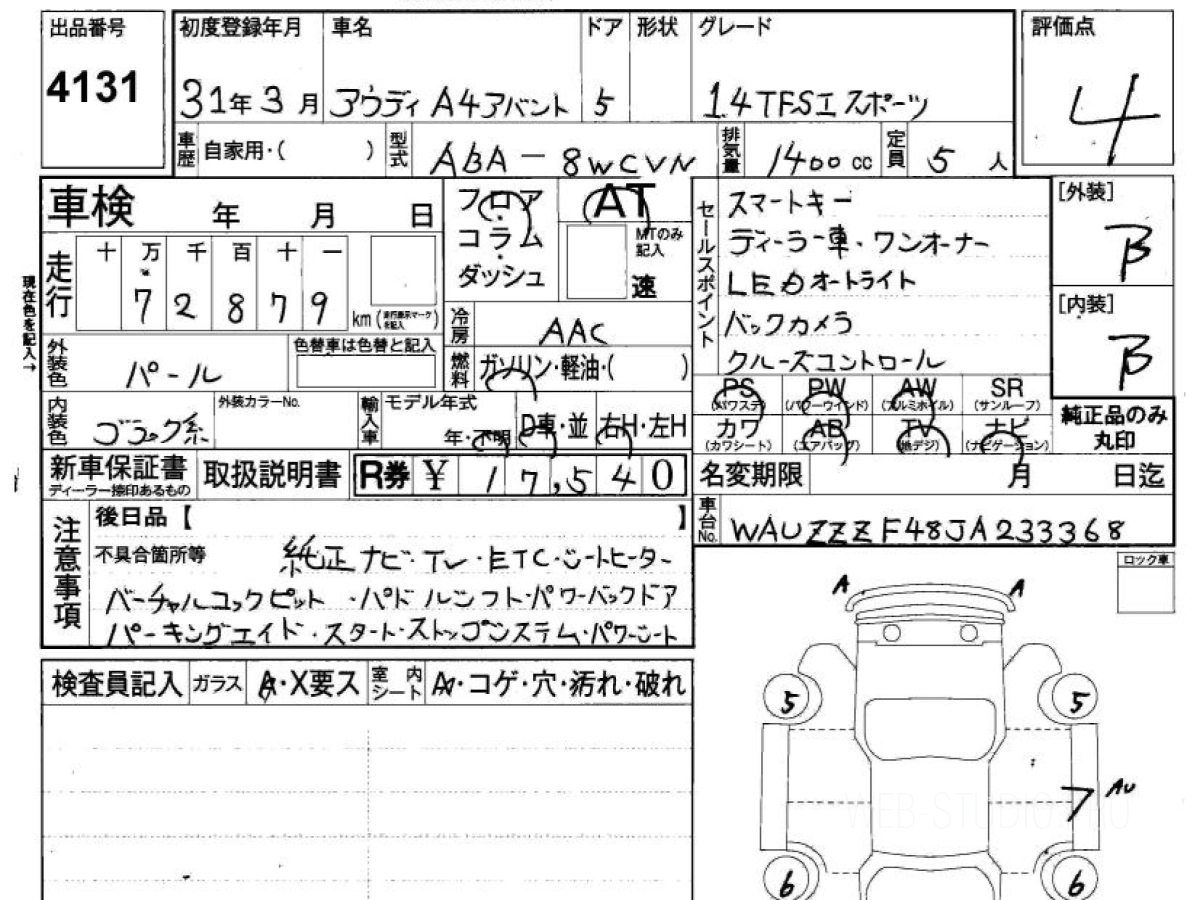 出品番号 初度登録年月 車名 ドア 形状 グレード 評価点
4131 31年3月 アウディ A4アバント 5 1.4TFSI スポーツ 4
車歴 自家用・( ) 型式 ABA-8WCVN 排気量 1400cc 定員 5人
車検 年 月 日 フロア AT セールスポイント スマートキー [外装]
コラム MTのみ記入 ディーラー車・ワンオーナー B
走行 十 万 千 百 十 一 ダッシュ 速 LEDオートライト
現在色を記入→ 7 2 8 7 9 km (走行表示マークを記入) 冷房 AAC バックカメラ [内装]
外装色 パール 色替車は色替と記入 燃料 ガソリン・軽油・( ) クルーズコントロール B
PS (パワステ) PW (パワーウインド) AW (アルミホイル) SR (サンルーフ)
内装色 ブラック系 外装カラーNo. 輸入車 モデル年式 年・不明 D車・並 右H・左H カワ (カワシート) AB (エアバッグ) TV (地デジ) ナビ (ナビゲーション) 純正品のみ丸印
新車保証書 ディーラー捺印あるもの 取扱説明書 R券 ¥ 17,540 名変期限 月 日迄
注意事項 後日品【 】 車台No. WAUZZZF48JA233368
不具合箇所等 純正ナビ・TV・ETC・シートヒーター ロック車
バーチャルコックピット・パドルシフト・パワーバックドア
パーキングエイド・スタート・ストップシステム・パワーシート
A A
検査員記入 ガラス A・X要ス 室内シート A・コゲ・穴・汚れ・破れ
5 5
AU
WEB-STUDIO.RU
6 6